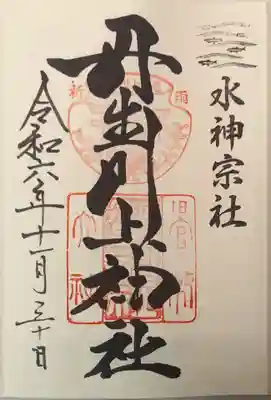 水神宗社
丹生川上神社
令和六年十一月三十日